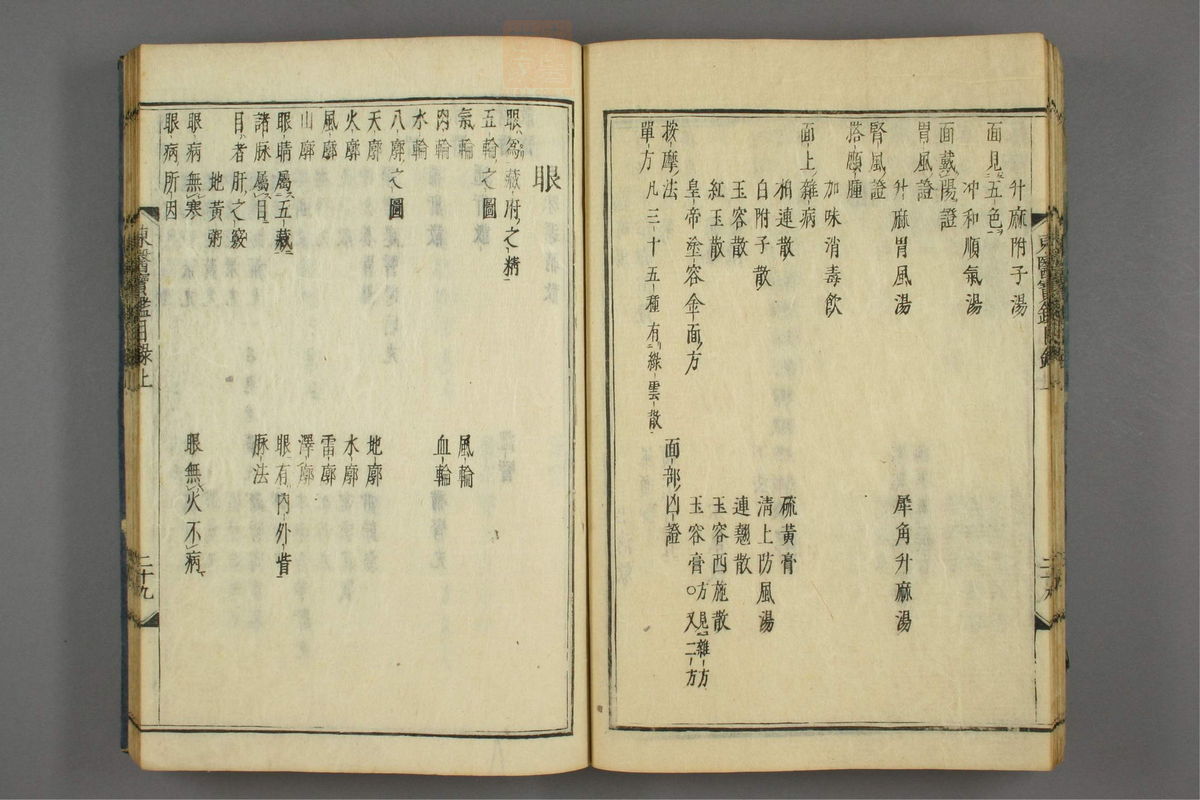 升麻附子湯
面見五色
冲和順氣湯
面戴陽證
胃風證
升麻胃風湯
犀角升麻湯
腎風證
搭顋腫
加味消毒飲
面上雜病
柏連散
硫黃膏
白附子散
清上防風湯
玉容散
連翹散
紅玉散
玉容西施散
皇帝塗容金面方
玉容膏方見雜方○又二方
按摩法
面部凶證
單方凡三十五種有綠雲散
東醫寶鑑目錄上
眼
眼爲藏府之精
五輪之圖
氣輪
風輪
肉輪
血輪
水輪
八廓之圖
天廓
地廓
火廓
水廓
風廓
雷廓
山廓
澤廓
眼睛屬五藏
眼有內外眥
諸脉屬目
脉法
目者肝之竅
地黃粥
眼病無寒
眼無火不病
眼病所因
東醫寶鑑目錄上
二十九